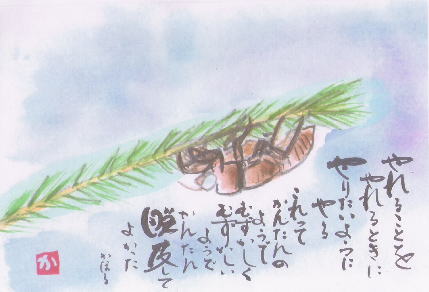 やれることを
やれるときに
やりたいように
やる
これって
かんたんの
ようで
むずかしく
むずかしい
ようで
かんたん
脱皮して
よかった
かほる
か